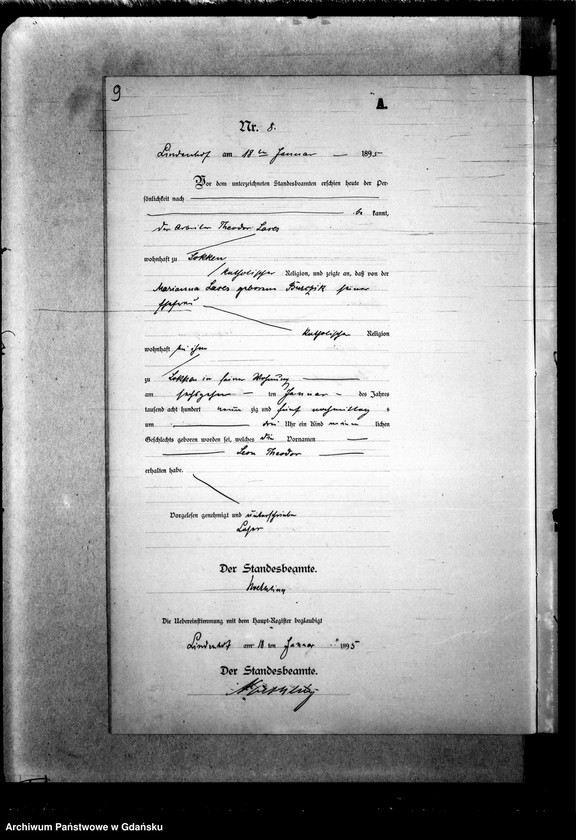 9
A.
Nr. 8.
Lindenhof am 18ten Januar 1895
Vor dem unterzeichneten Standesbeamten erschien heute der Per-
sönlichkeit nach
be kannt,
der Arbeiter Theodor Lares
wohnhaft zu Sokken
katholischer Religion, und zeigte an, daß von der
Marianna Lares geborene seiner
Ehefrau
katholische Religion
wohnhaft bei ihm
zu Sokken in seiner Wohnung
am sechszehn ten Januar des Jahres
tausend acht hundert neun zig und fünf nachmittag s
um drei Uhr ein Kind männ lichen
Geschlechts geboren worden sei, welches die Vornamen
Leon Theodor
erhalten habe.
Vorgelesen genehmigt und unterschrieben
Der Standesbeamte.
Die Uebereinstimmung mit dem Haupt-Register beglaubigt
Lindenhof am 18 ten Januar 1895
Der Standesbeamte.
Archiwum Państwowe w Gdańsku